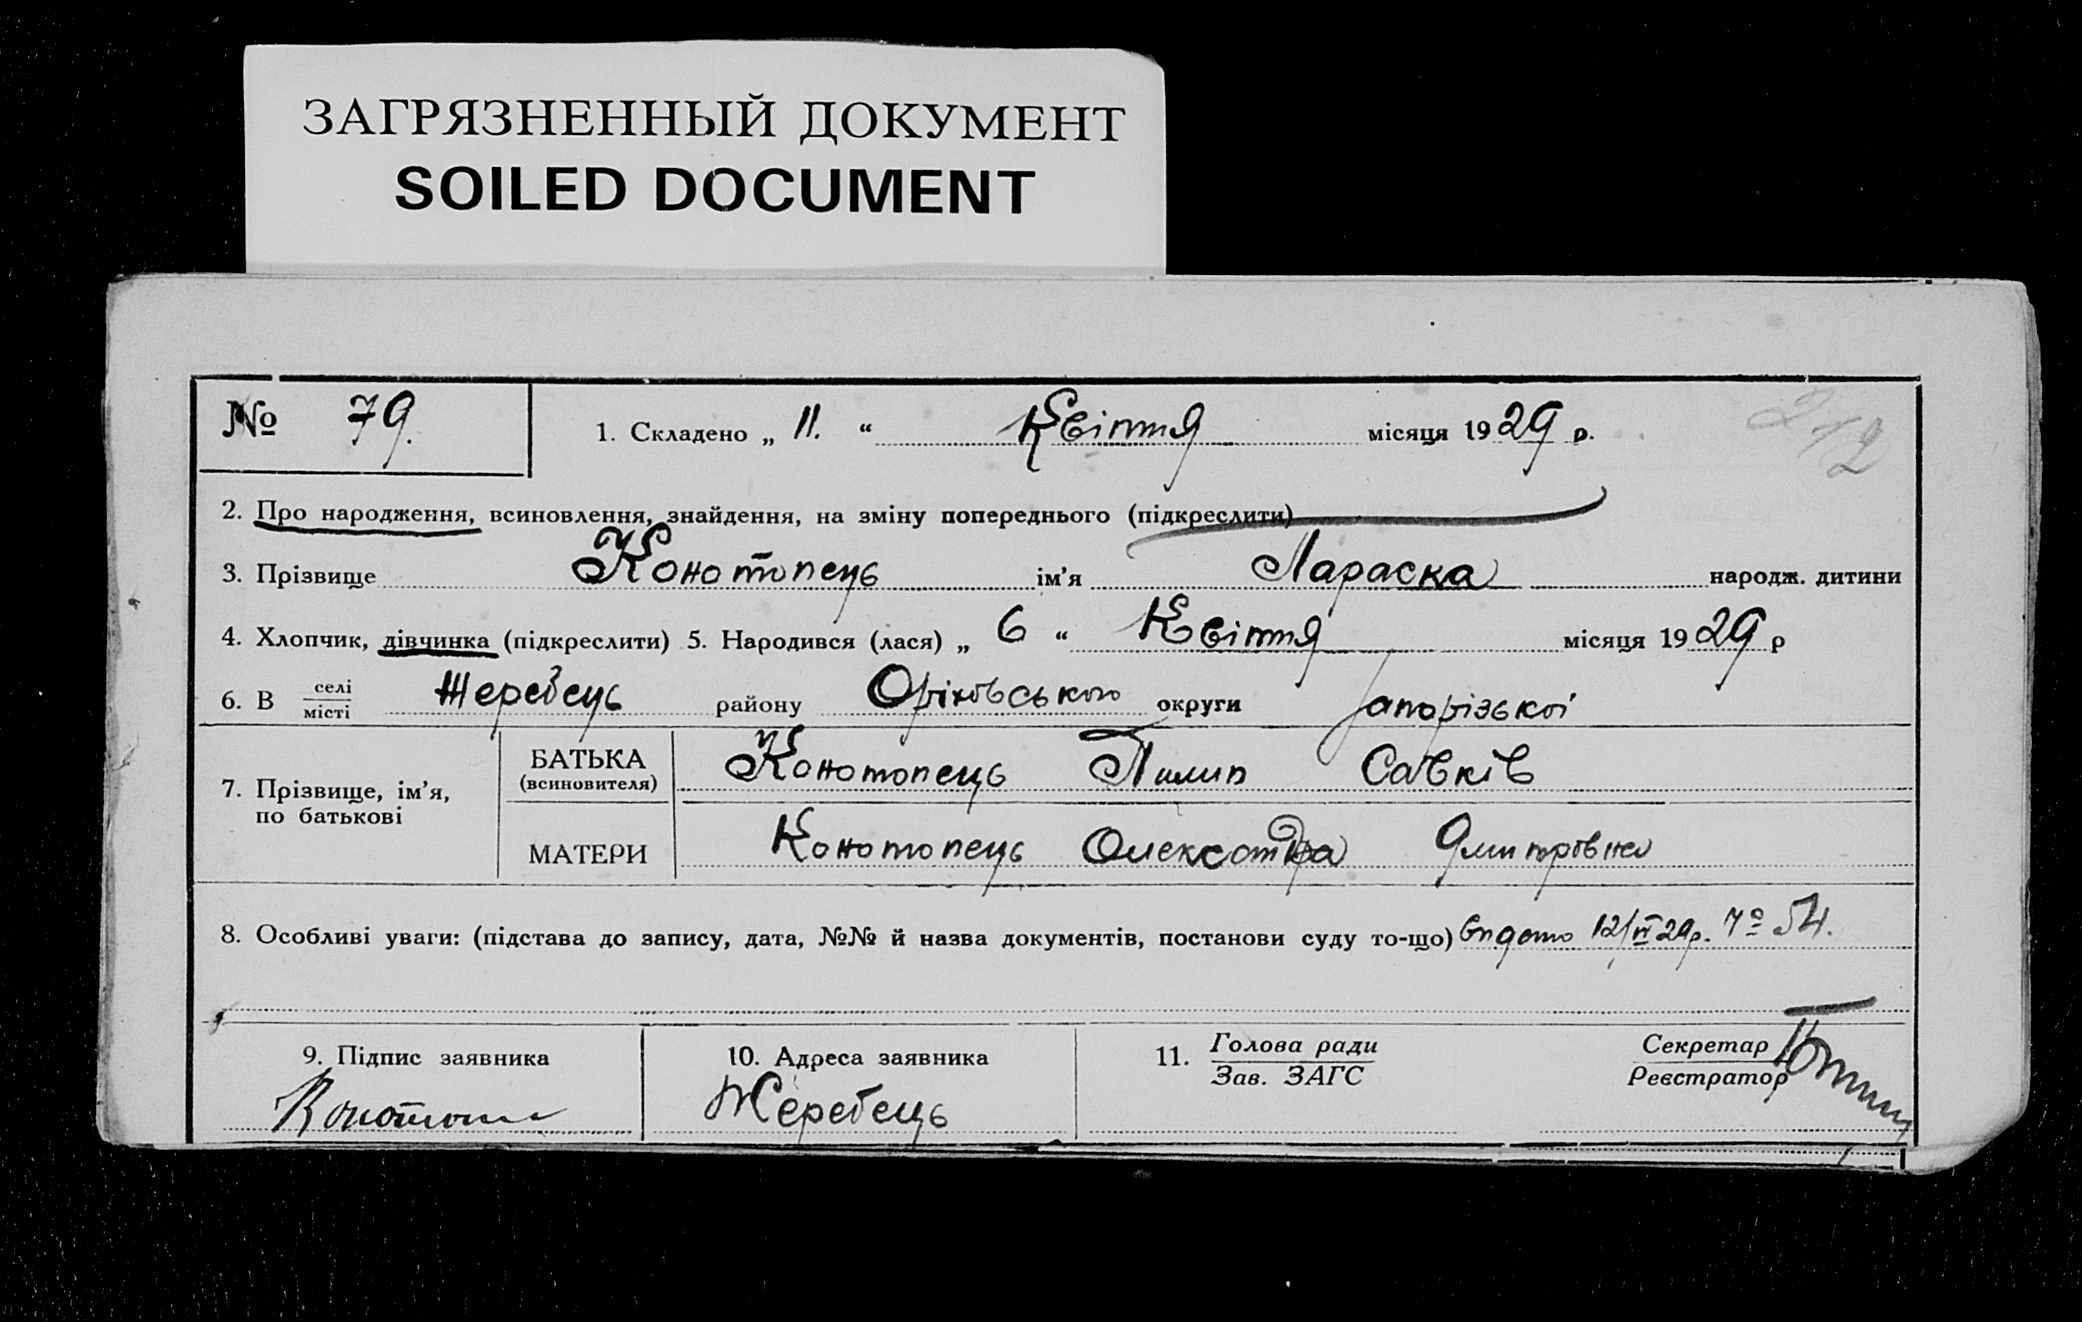 ЗАГРЯЗНЕННЫЙ ДОКУМЕНТ
SOILED DOCUMENT
212
№ 79. 1. Складено „ 11. “ Квіття місяця 1929 р.
2. Про народження, всиновлення, знайдення, на зміну попереднього (підкреслити)
3. Прізвище Конотопець ім'я Параска народж. дитини
4. Хлопчик, дівчинка (підкреслити) 5. Народився (лася) „ 6 “ Квіття місяця 1929 р
6. В селі/місті Жеребець району Оріхівського округи Запорізької
7. Прізвище, ім'я, по батькові
БАТЬКА (всиновителя) Конотопець Пилип Савків
МАТЕРИ Конотопець Олександра Дмитрівна
8. Особливі уваги: (підстава до запису, дата, №№ й назва документів, постанови суду то-що) Видано 12/IV 29р. № 54.
9. Підпис заявника 10. Адреса заявника 11. Голова ради/Зав. ЗАГС Секретар/Реєстратор
Жеребець